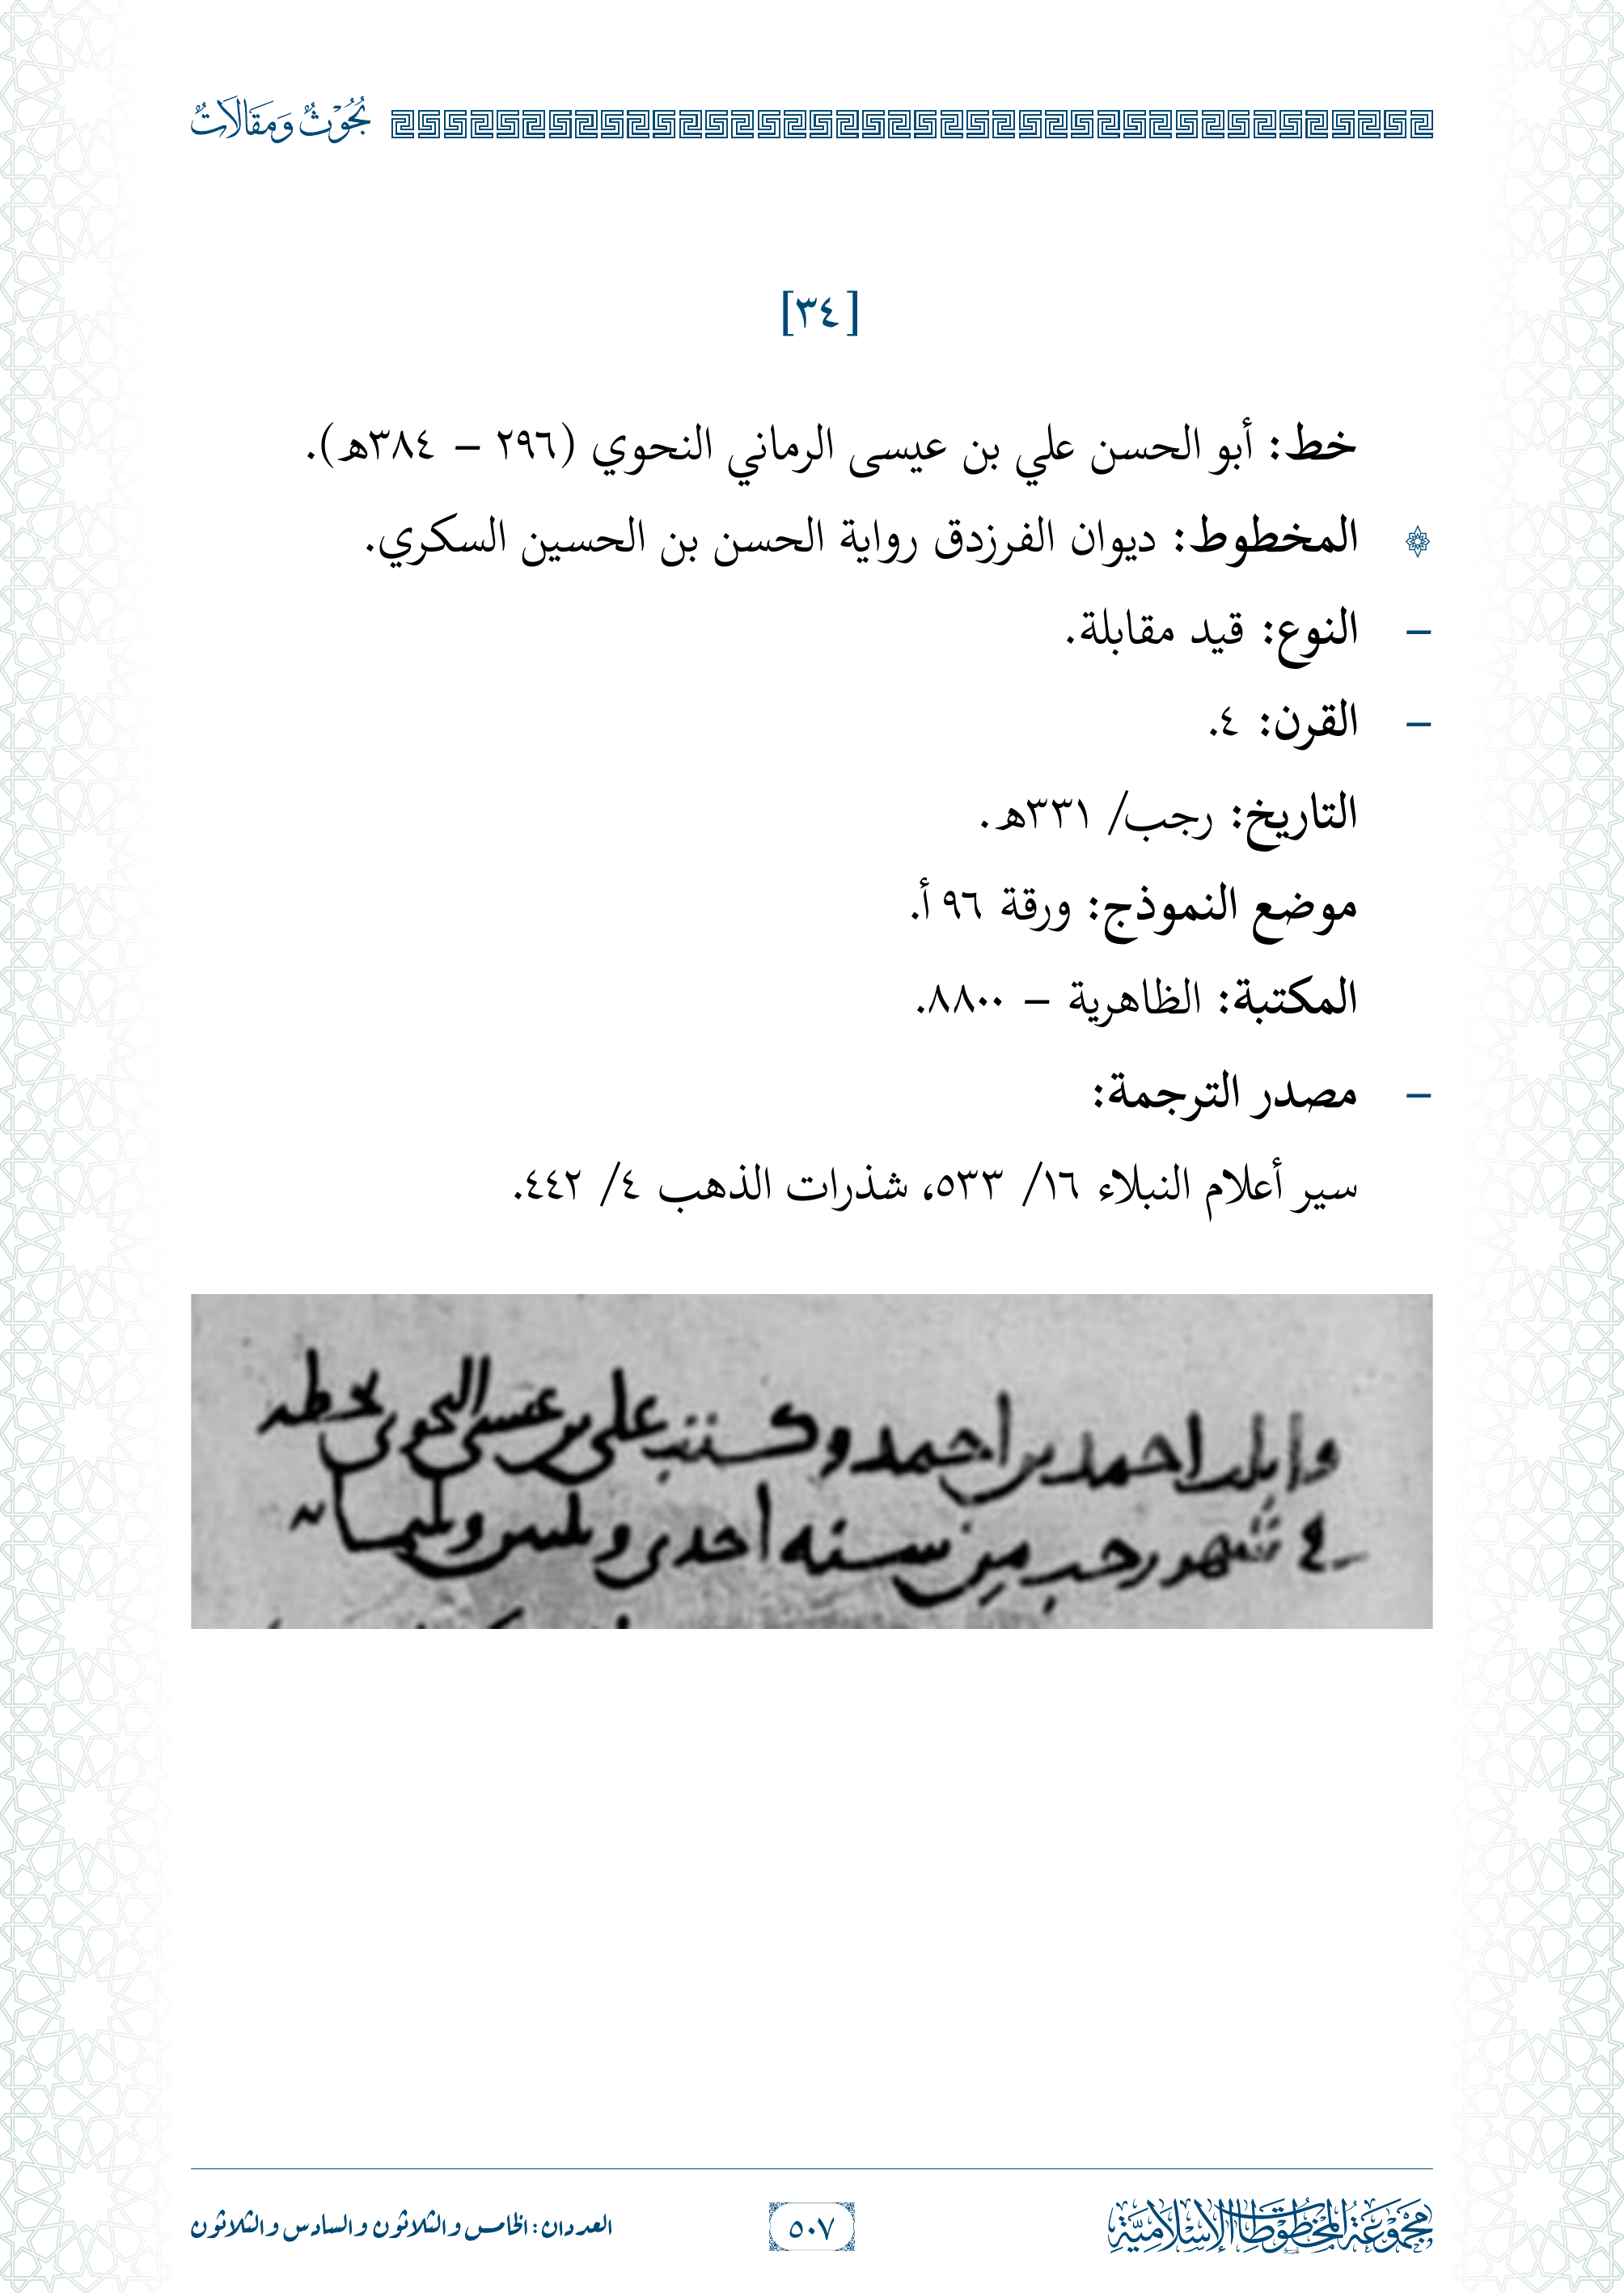 بُحُوْثٌ وَمَقَالَاتٌ
[٣٤]
خط: أبو الحسن علي بن عيسى الرماني النحوي (٢٩٦ – ٣٨٤هـ).
المخطوط: ديوان الفرزدق رواية الحسن بن الحسين السكري.
– النوع: قيد مقابلة.
– القرن: ٤.
التاريخ: رجب/ ٣٣١هـ.
موضع النموذج: ورقة ٩٦ أ.
المكتبة: الظاهرية – ٨٨٠٠.
– مصدر الترجمة:
سير أعلام النبلاء ١٦/ ٥٣٣، شذرات الذهب ٤/ ٤٤٢.
احمد بن احمد وكتب علي بن عيسى النحوي بخطه
في شهر رجب من سنه احدى وثلثين وثلثمائه
مَجْمُوْعَةُ المَخْطُوْطَاتِ الإِسْلَامِيَّةِ
٥٠٧
العددان: الخامس والثلاثون والسادس والثلاثون